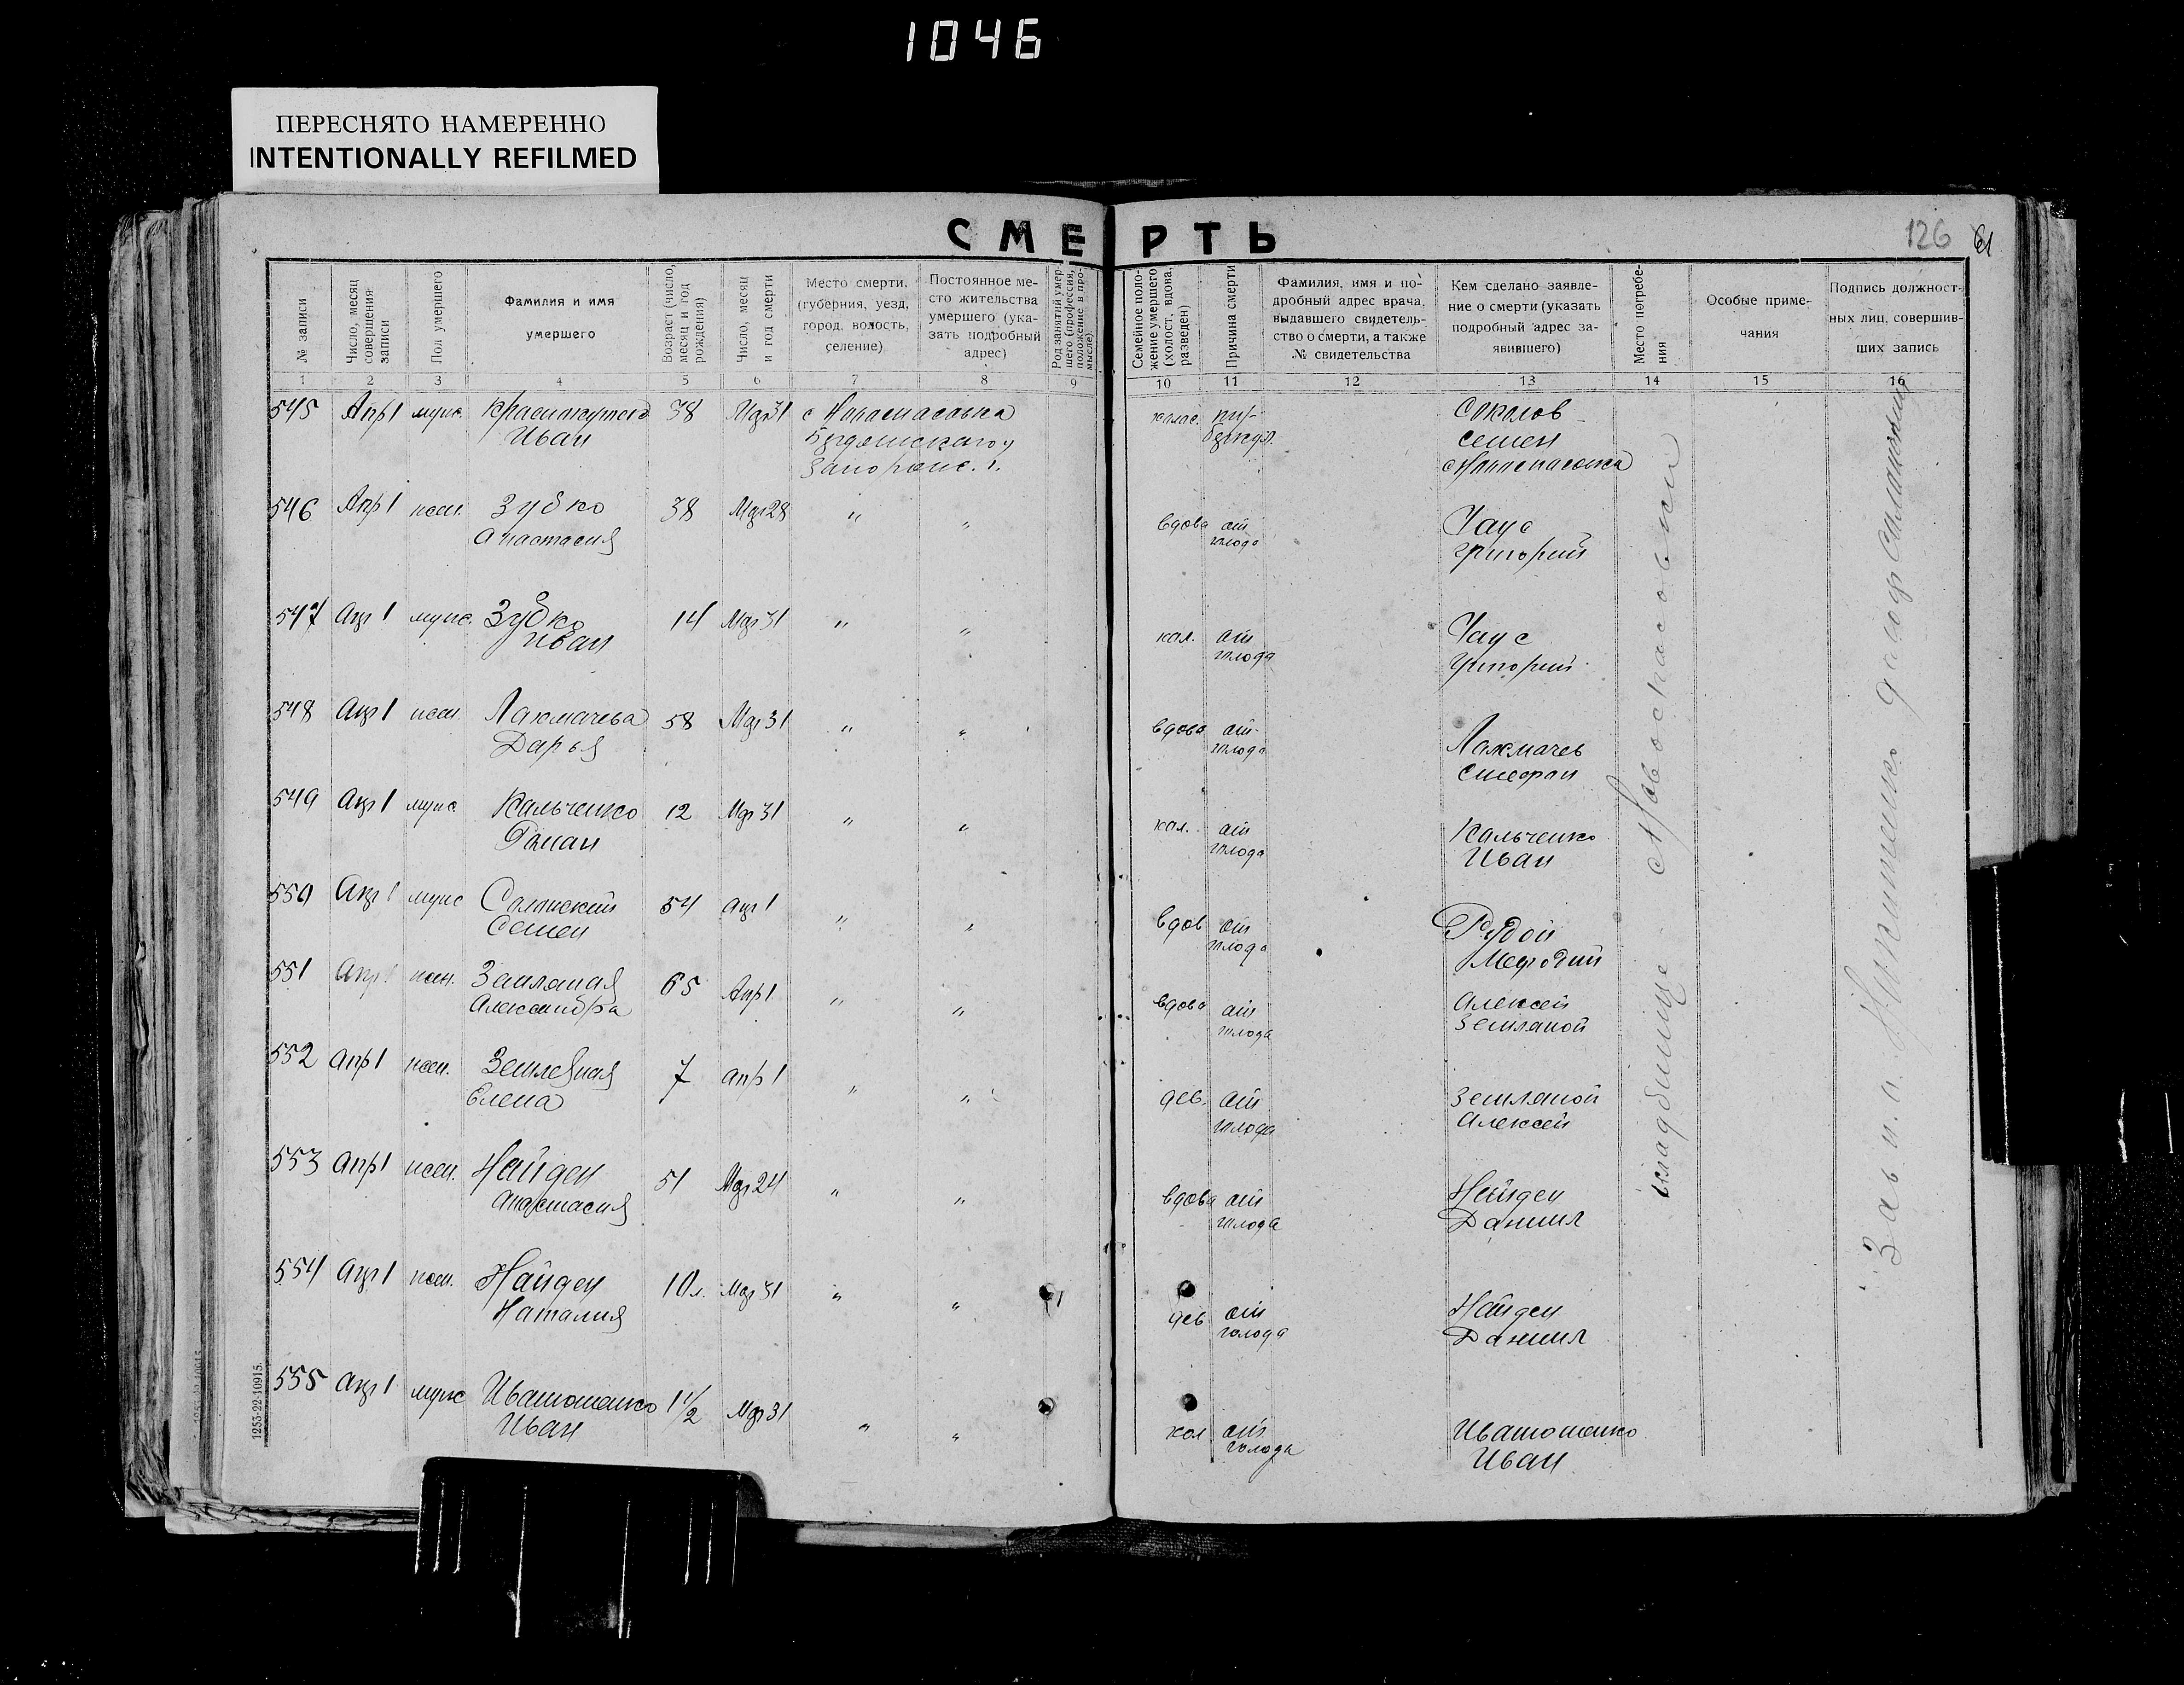 1046
ПЕРЕСНЯТО НАМЕРЕННО
INTENTIONALLY REFILMED
СМЕРТЬ
126
61
№ записи
Число, месяц совершения записи
Пол умершего
Фамилия и имя умершего
Возраст (число, месяц и год рождения)
Число, месяц и год смерти
Место смерти, (губерния, уезд, город, волость, селение)
Постоянное место жительства умершего (указать подробный адрес)
Род занятий умершего (профессия, положение в промысле)
Семейное положение умершего (холост, вдова, разведен)
Причина смерти
Фамилия, имя и подробный адрес врача, выдавшего свидетельство о смерти, а также № свидетельства
Кем сделано заявление о смерти (указать подробный адрес заявившего)
Место погребения
Особые примечания
Подпись должностных лиц, совершивших запись
1 2 3 4 5 6 7 8 9 10 11 12 13 14 15 16
545 Апр 1 муж. Иван 38 Мар 31 с Новоспасовка Запорож. г. Соколов Семен с Новоспасовка
546 Апр 1 жен. Зубко Анастасия 38 Мар 28 " " вдова от голода Чаус Григорий
547 Апр 1 муж. Зубко Иван 14 Мар 31 " " хол. от голода Чаус Григорий
548 Апр 1 жен. Лахмачева Дарья 58 Мар 31 " " вдова от голода Лахмачев Стефан
549 Апр 1 муж. Кальченко Роман 12 Мар 31 " " хол. от голода Кальченко Иван
550 Апр 1 муж Семен 54 Апр 1 " " вдов от голода Рудой Мефодий
551 Апр 1 жен. Земляная Александра 65 Апр 1 " " вдова от голода Алексей Земляной
552 Апр 1 жен. Земляная Елена 7 Апр 1 " " дев. от голода Земляной Алексей
553 Апр 1 жен. Найден Анастасия 51 Мар 24 " " вдова от голода Найден Даниил
554 Апр 1 жен. Найден Наталия 10 л. Мар 31 " " дев от голода Найден Даниил
555 Апр 1 муж Ивашошенко Иван 1 1/2 Мар 31 " " хол от голода Ивашошенко Иван
кладбище с Новоспасовки
1253-22-10915.